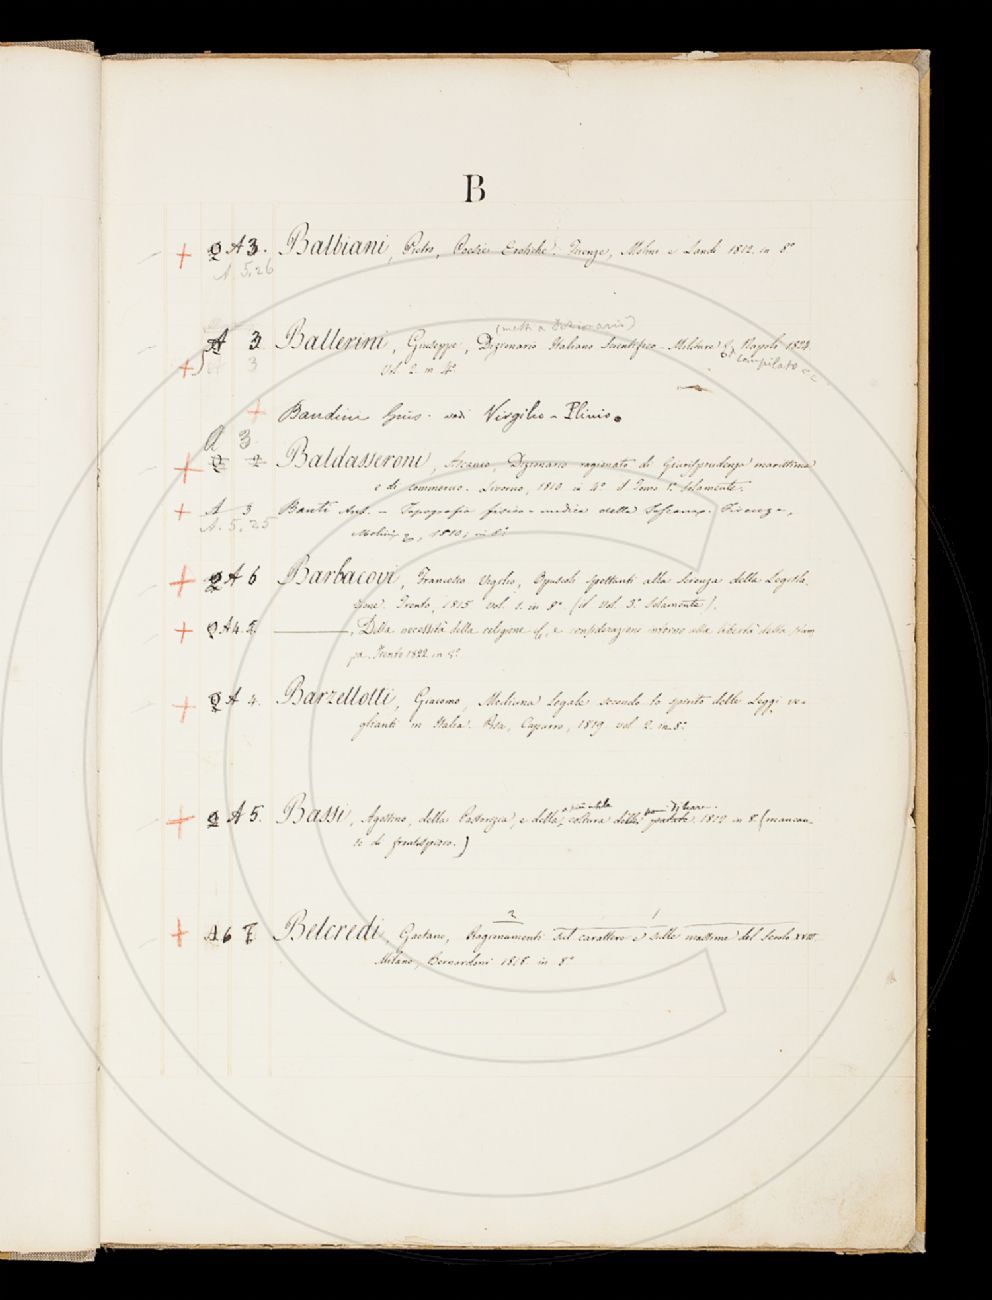 B
+ A 3. Balbiani, Pietro, Poesie Erotiche. Firenze, Molini e Landi 1812. in 8°
A 5.26
(metti a Dizionario)
A 3 Ballerini, Giuseppe, Dizionario Italiano Scientifico-Militare Napoli 1824
+ A 3 Vol. 2. in 4° compilato
+ Bandini vedi Virgilio - Plinio.
A 3
+ 2 2 Baldasseroni, Ascanio, Dizionario ragionato di Giurisprudenza marittima
e di commercio. Livorno, 1810 in 4° il Tomo 1° solamente.
+ A 3 Banti Ant. - Topografia fisico-medica della Toscana. Firenze,
A. 5.25
Molini, 1810, in 8°
+ A 6 Barbacovi, Francesco Vigilio, Opuscoli spettanti alla Scienza della Legisla-
zione. Trento, 1815 vol. 1. in 8° (il vol. 3° solamente).
+ A 4. 2. ———, Della necessità della religione e considerazione intorno alla libertà della stam
pa. Trento 1822 in 8°
+ A 4. Barzellotti, Giacomo, Medicina Legale secondo lo spirito delle Leggi ve-
glianti in Italia. Pisa, Capurro, 1819 vol 2. in 8°
+ A 5. Bassi, Agostino, della Pastorizia, e della coltura delle patate 1812 in 8° (mancan-
te di frontespizio.)
2 1
+ A 6 7 Belcredi, Gaetano, Ragionamenti sul carattere e sulle massime del Secolo XVIII
Milano, Bernardoni 1818 in 8°